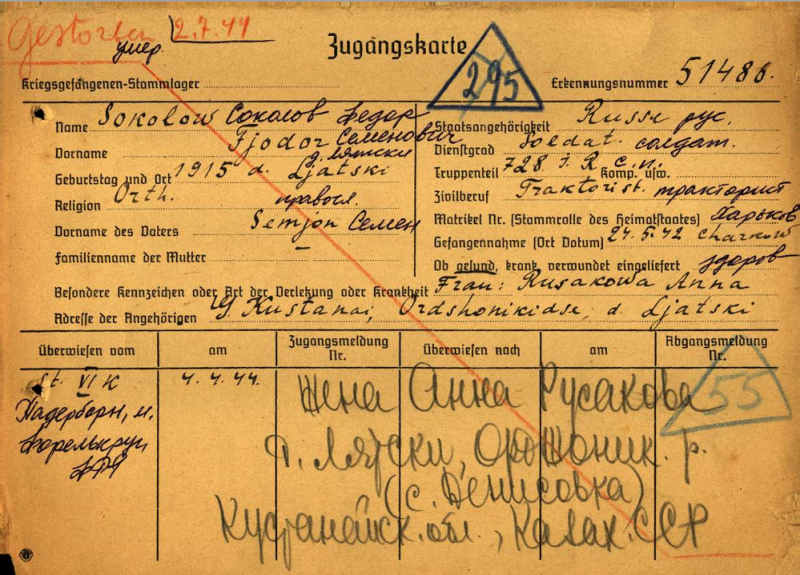 Gestorben 2.7.44
умер.
Zugangskarte
295
Kriegsgefangenen-Stammlager
Erkennungsnummer 51486.
Name Sokolow Соколов Федор
Vorname Fjodor Семенович
Geburtstag und Ort 1915 d. Ljatski д. Лятски
Religion Orth. правосл.
Vorname des Vaters Semjon Семен
Familienname der Mutter –
Staatsangehörigkeit Russe рус.
Dienstgrad Soldat. солдат.
Truppenteil 728 I. R. с.п. Komp. usw.
Zivilberuf Traktorist. тракторист
Matrikel Nr. (Stammrolle des Heimatstaates) Харьков
Gefangennahme (Ort Datum) 24.5.42 Charkow
Ob gesund, krank, verwundet eingeliefert здоров
Besondere Kennzeichen oder Art der Verletzung oder Krankheit Frau: Rusakowa Anna
Adresse der Angehörigen G Kustanai, Ordshonikidse, d. Ljatski
überwiesen vom am Zugangsmeldung Nr. überwiesen nach am Abgangsmeldung Nr.
St. VI K 4.4.44.
55
Падерборн, м.
Форелькруг
ФРГ
Жена Анна Русакова
д. Лятски, Орджоник. р.
(с. Денисовка)
Кустанайск. обл., Казах. ССР